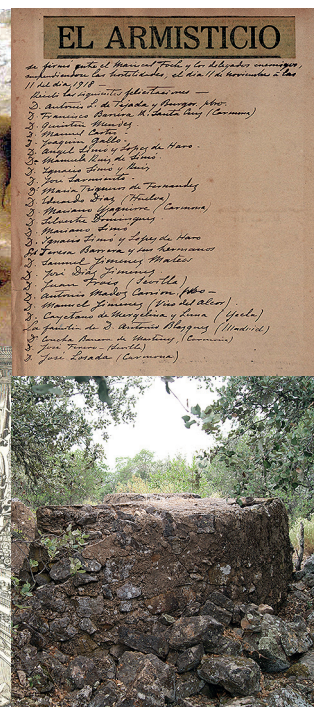 EL ARMISTICIO
se firmó entre el Mariscal Foch y los delegados enemigos,
suspendiéndose las hostilidades, el día 11 de noviembre a las
11 del día, 1918 —
Recibí las siguientes felicitaciones —
D. Antonio L. de Tejada y Burgos, pbo.
D. Francisco Barrera (Carmona)
D. Quintín Mendes
D. Manuel Cortes
D. Joaquín Gallo
D. Angel Simó y Lopes de Haro
Dª Manuela Ruiz de Simó
D. Ignacio Simó y Ruiz
D. José Sarmiento
Dª María Trigueros de Fernandes
D. Eduardo Dias (Huelva)
D. Mariano (Carmona)
D. Silvestre Domingues
D. Mariano Simó
D. Ignacio Simó y Lopes de Haro
Teresa Barrera y sus hermanos
D. Samuel Jimenes Mateos
D. José Dias Jimenes
D. Juan (Sevilla)
D. Antonio Carrion pbo —
D. Manuel Jimenes (Viso del Alcor)
D. Cayetano de Mergelina y Luna (Yecla)
La familia de D. Antonio Blasques (Madrid)
Dª Concha (Carmona)
D. José (Sevilla)
D. José Losada (Carmona)